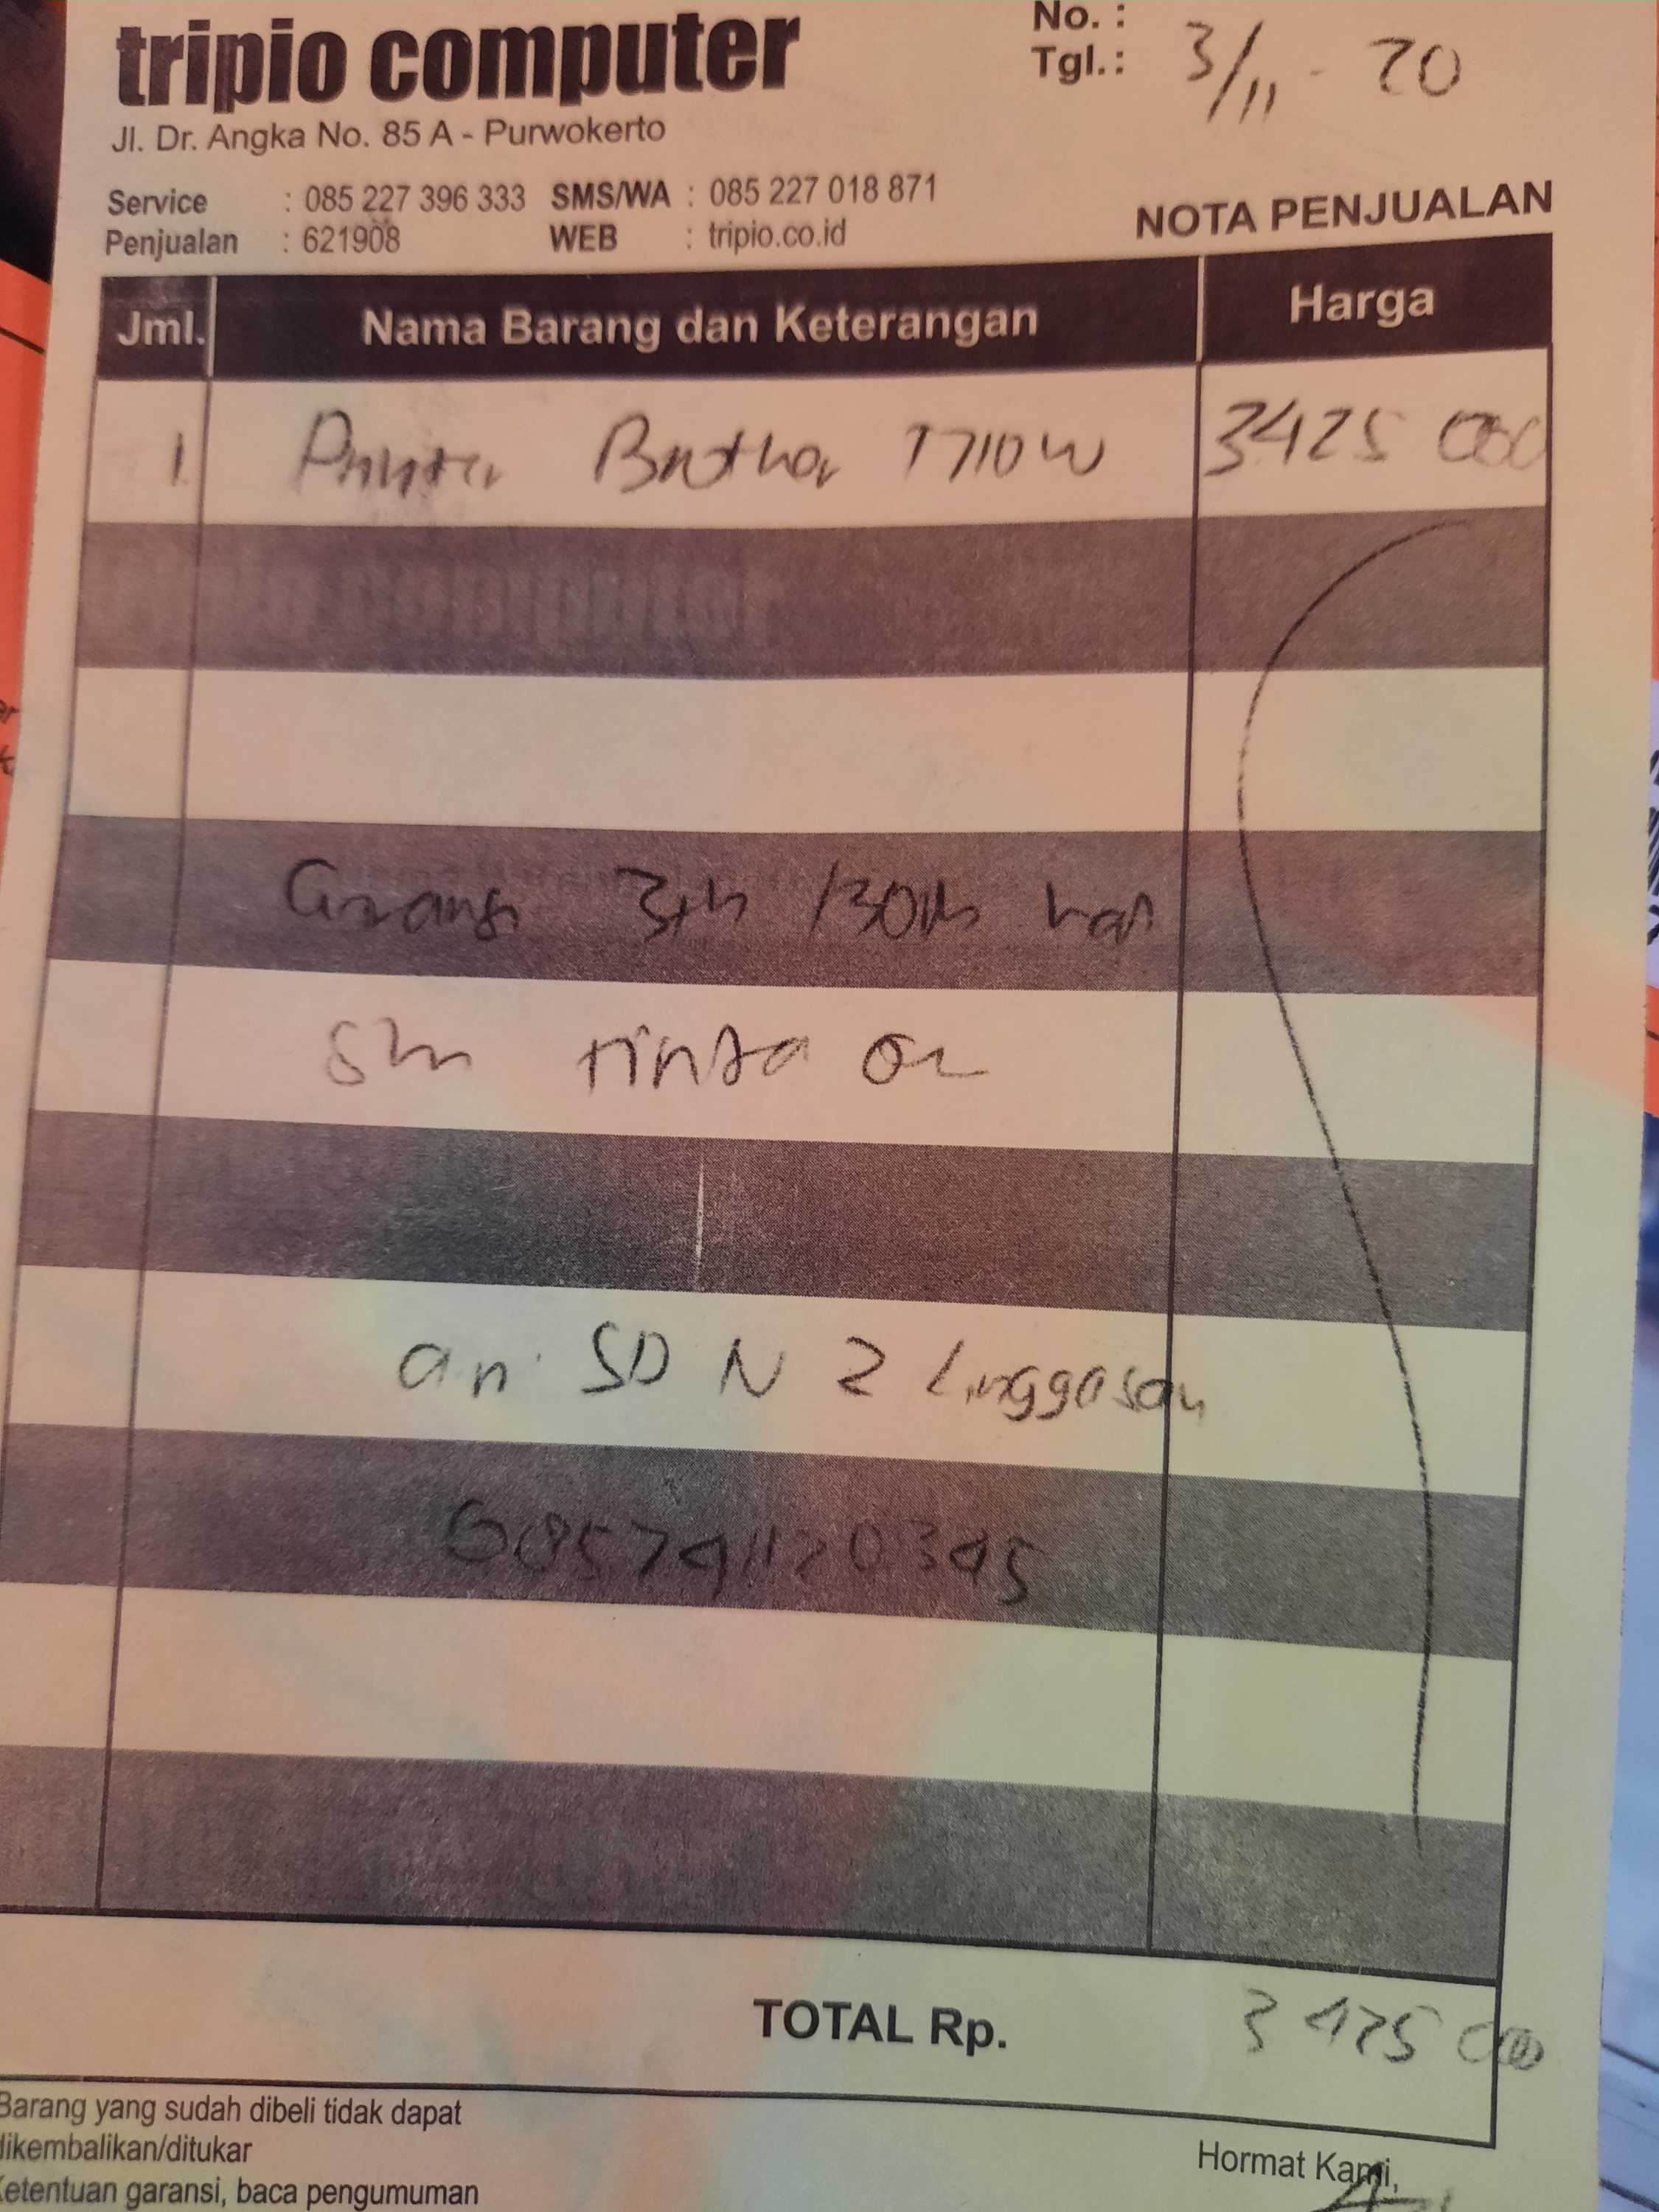 tripio computer
No. :
Tgl. : 3/11 - 20
Jl. Dr. Angka No. 85 A - Purwokerto
Service : 085 227 396 333 SMS/WA : 085 227 018 871
Penjualan : 621908 WEB : tripio.co.id
NOTA PENJUALAN
Jml. Nama Barang dan Keterangan Harga
1 Printer Brother T710W 3425 000
Garansi 3th /30rb
tinta
an. SD N 2 Linggasari
TOTAL Rp. 3 425 000
Barang yang sudah dibeli tidak dapat
dikembalikan/ditukar
Ketentuan garansi, baca pengumuman
Hormat Kami,